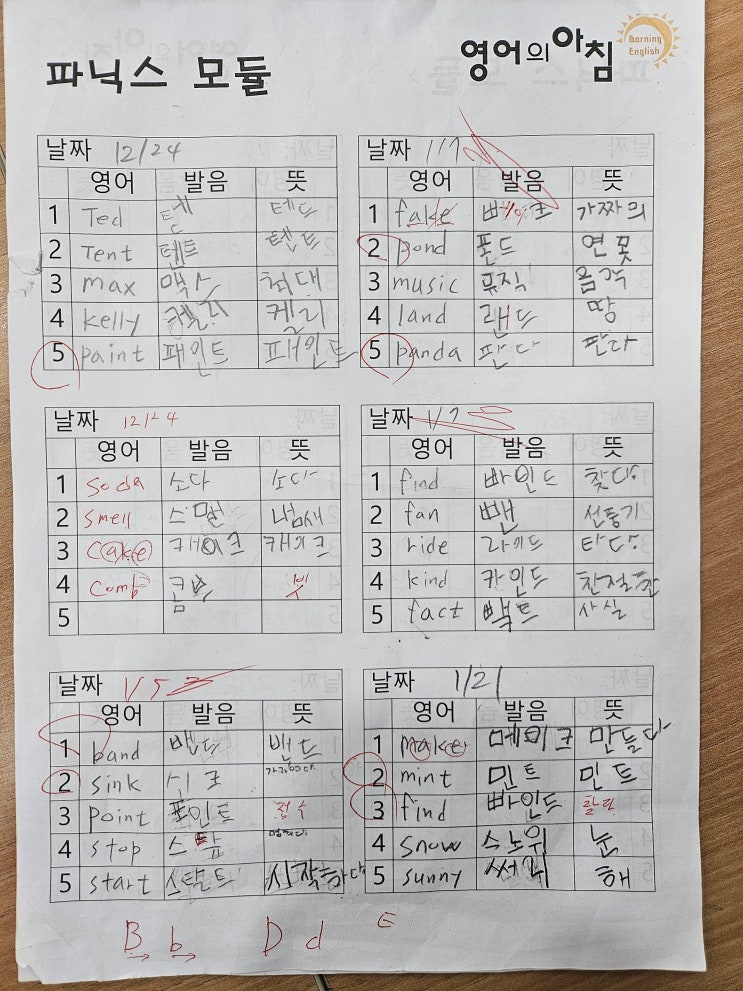 파닉스 모듈
영어의아침
Morning English
날짜 12/24
영어 발음 뜻
1 Ted 텓 텓드
2 Tent 텐트 텐트
3 max 맥스 최대
4 kelly 켈리 켈리
5 paint 패인트 패인트
날짜 1/7
영어 발음 뜻
1 fake 빠이크 가짜의
2 pond 폰드 연못
3 music 뮤직 음악
4 land 랜드 땅
5 panda 판다 판다
날짜 12/24
영어 발음 뜻
1 soda 소다 소다
2 smell 스멜 냄새
3 cake 캐이크 캐이크
4 comb 콤 빗
5
날짜 1/7
영어 발음 뜻
1 find 빠인드 찾다
2 fan 뺀 선풍기
3 ride 라이드 타다
4 kind 카인드 친절한
5 fact 빽트 사실
날짜 1/5
영어 발음 뜻
1 band 밴드 밴드
2 sink 싱크
3 point 포인트 점수
4 stop 스탑 멈추다
5 start 스탈트 시작하다
날짜 1/21
영어 발음 뜻
1 make 메이크 만들다
2 mint 민트 민트
3 find 빠인드
4 snow 스노위 눈
5 sunny 써니 해
B b D d